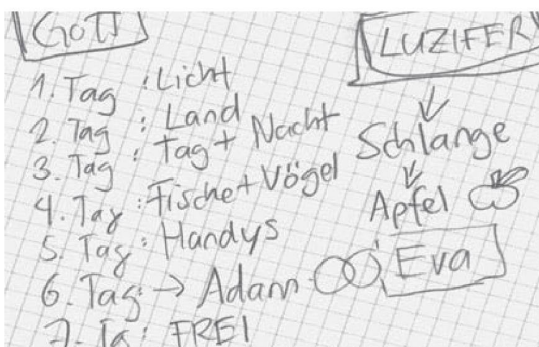 GOTT
1. Tag : Licht
2. Tag : Land
3. Tag : Tag + Nacht
4. Tag : Fische + Vögel
5. Tag : Handys
6. Tag : → Adam
7. Ta : FREI
LUZIFER
Schlange
Apfel
Eva